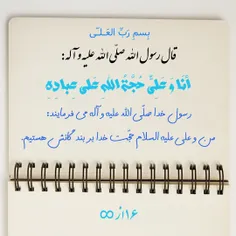 بِسمِ رَبِّ العَلـی
قال رسول الله صلّی الله علیه وآله:
أَنَا وَ عَلِيٌّ حُجَّةُ اللَّهِ عَلى عِبادِهِ
رسول خدا صلّی الله علیه و آله می فرمایند:
من و علی علیه السلام حجّت خدا بر بندگانش هستیم
۱۶ از ∞